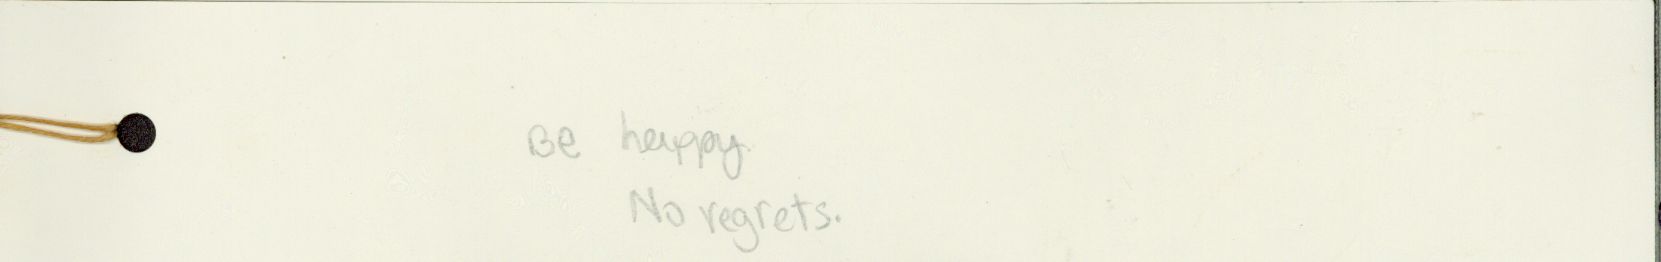 Be happy
No regrets.